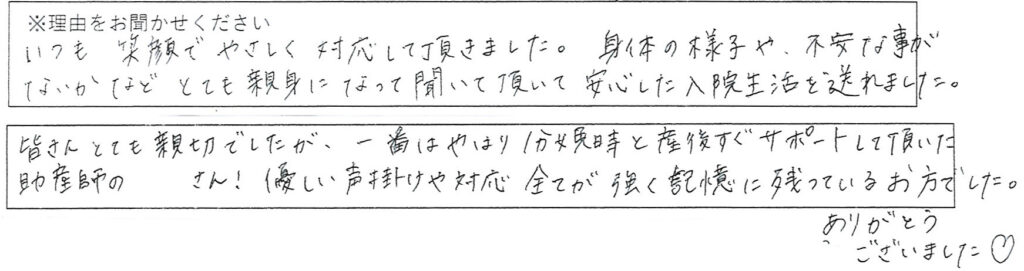 ※理由をお聞かせください
いつも 笑顔で やさしく 対応して頂きました。 身体の様子や、不安な事が
ないかなど とても親身になって聞いて頂いて 安心した入院生活を送れました。
皆さんとても親切でしたが、一番はやはり分娩時と産後すぐサポートして頂いた
助産師の さん! 優しい声掛けや対応 全てが 強く記憶に残っているお方でした。
ありがとう
ございました♡